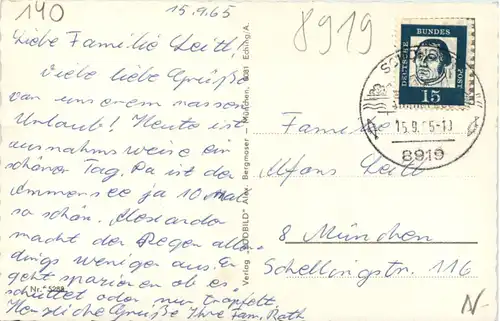 140
15.9.65
8919
Liebe Familie Leitl!
Viele liebe Grüße
von unserem nassen
Urlaub! Heute ist
ausnahmsweise ein
schöner Tag. Da ist der
Ammersee ja 10 Mal
so schön.
macht der Regen aller-
dings weniger aus. Er
geht spazieren ob es
schüttet oder nur tröpfelt.
Herzliche Grüße Ihre Fam. Roth
Nr. 5288
Verlag "SÜDBILD" Alex. Bergmoser - München, 8081 Eching/A.
DEUTSCHE BUNDESPOST
15
15.9.65-10
8919
Familie
Alfons Leitl
8 München
Schellingstr. 116
N